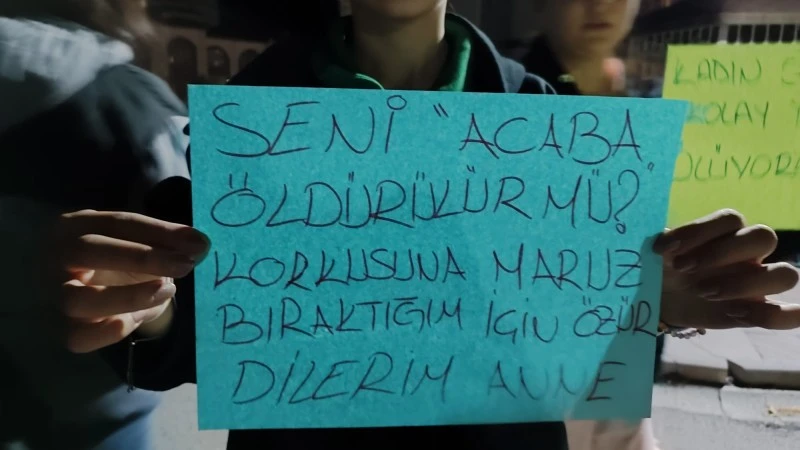 SENİ "ACABA
ÖLDÜRÜLÜR MÜ?"
KORKUSUNA MARUZ
BIRAKTIĞIM İÇİN ÖZÜR
DİLERİM ANNE
KADIN
KOLAY